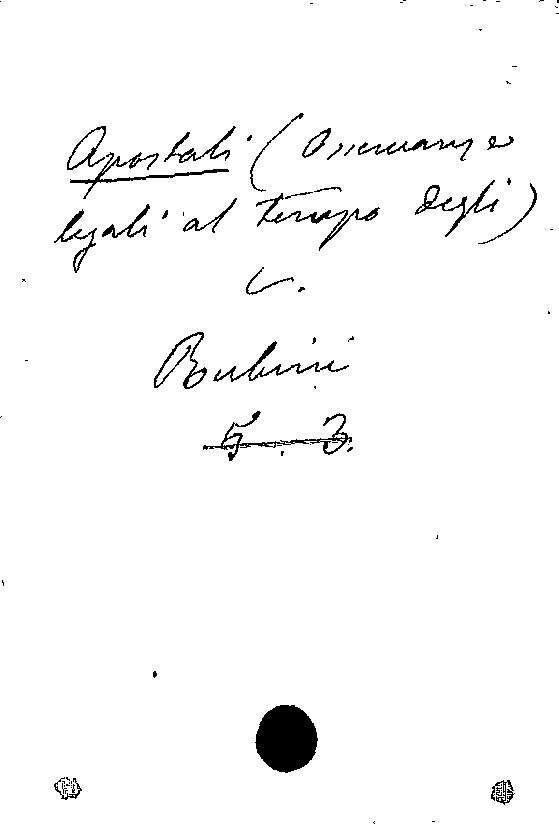 Apostoli (Osservanze
legali al tempo degli)
v.
Rubini
5. 3.